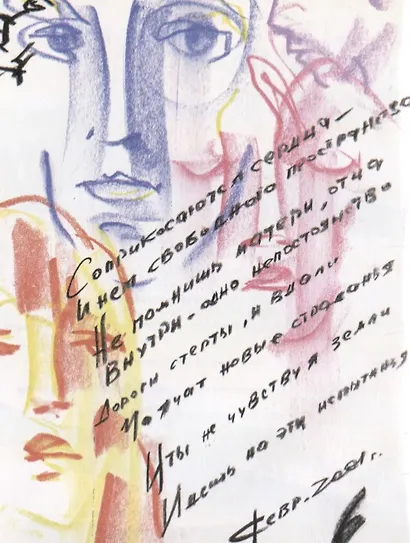 Соприкосаются сердца –
И нет свободного пространства
Не помнишь матери, отца
Внутри – одно непостоянство
Дороги стерты, и вдали
Молчат новые страданья
И ты не чувствуя земли
Идешь на эти испытанья
Февр. 2001 г.